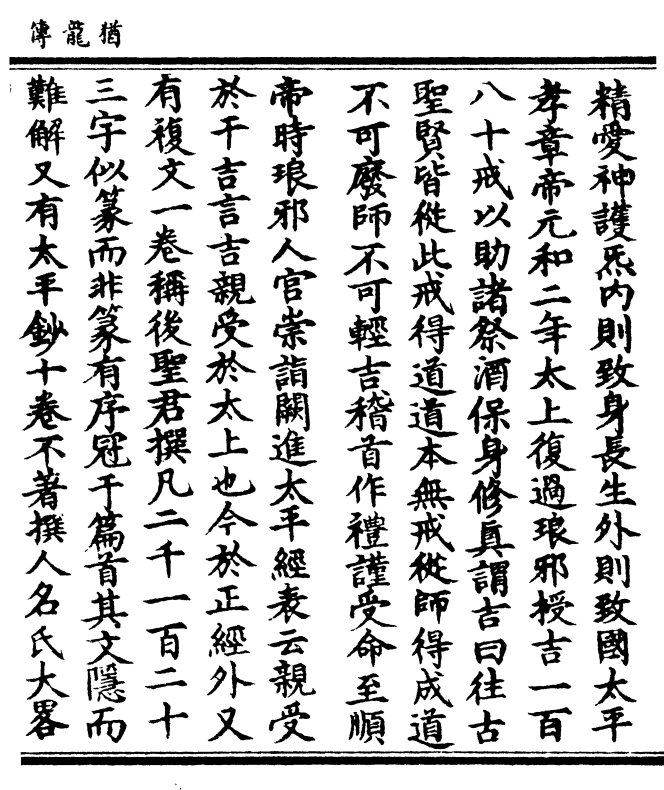 猶龍傳
精愛神護炁内則致身長生外則致國太平
孝章帝元和二年太上復過琅邪授吉一百
八十戒以助諸祭酒保身修真謂吉曰往古
聖賢皆從此戒得道道本無戒從師得成道
不可廢師不可輕吉稽首作禮謹受命至順
帝時琅邪人宮崇詣闕進太平經表云親受
於干吉言吉親受於太上也今於正經外又
有複文一卷稱後聖君撰凡二千一百二十
三字似篆而非篆有序冠于篇首其文隱而
難解又有太平鈔十卷不著撰人名氏大畧